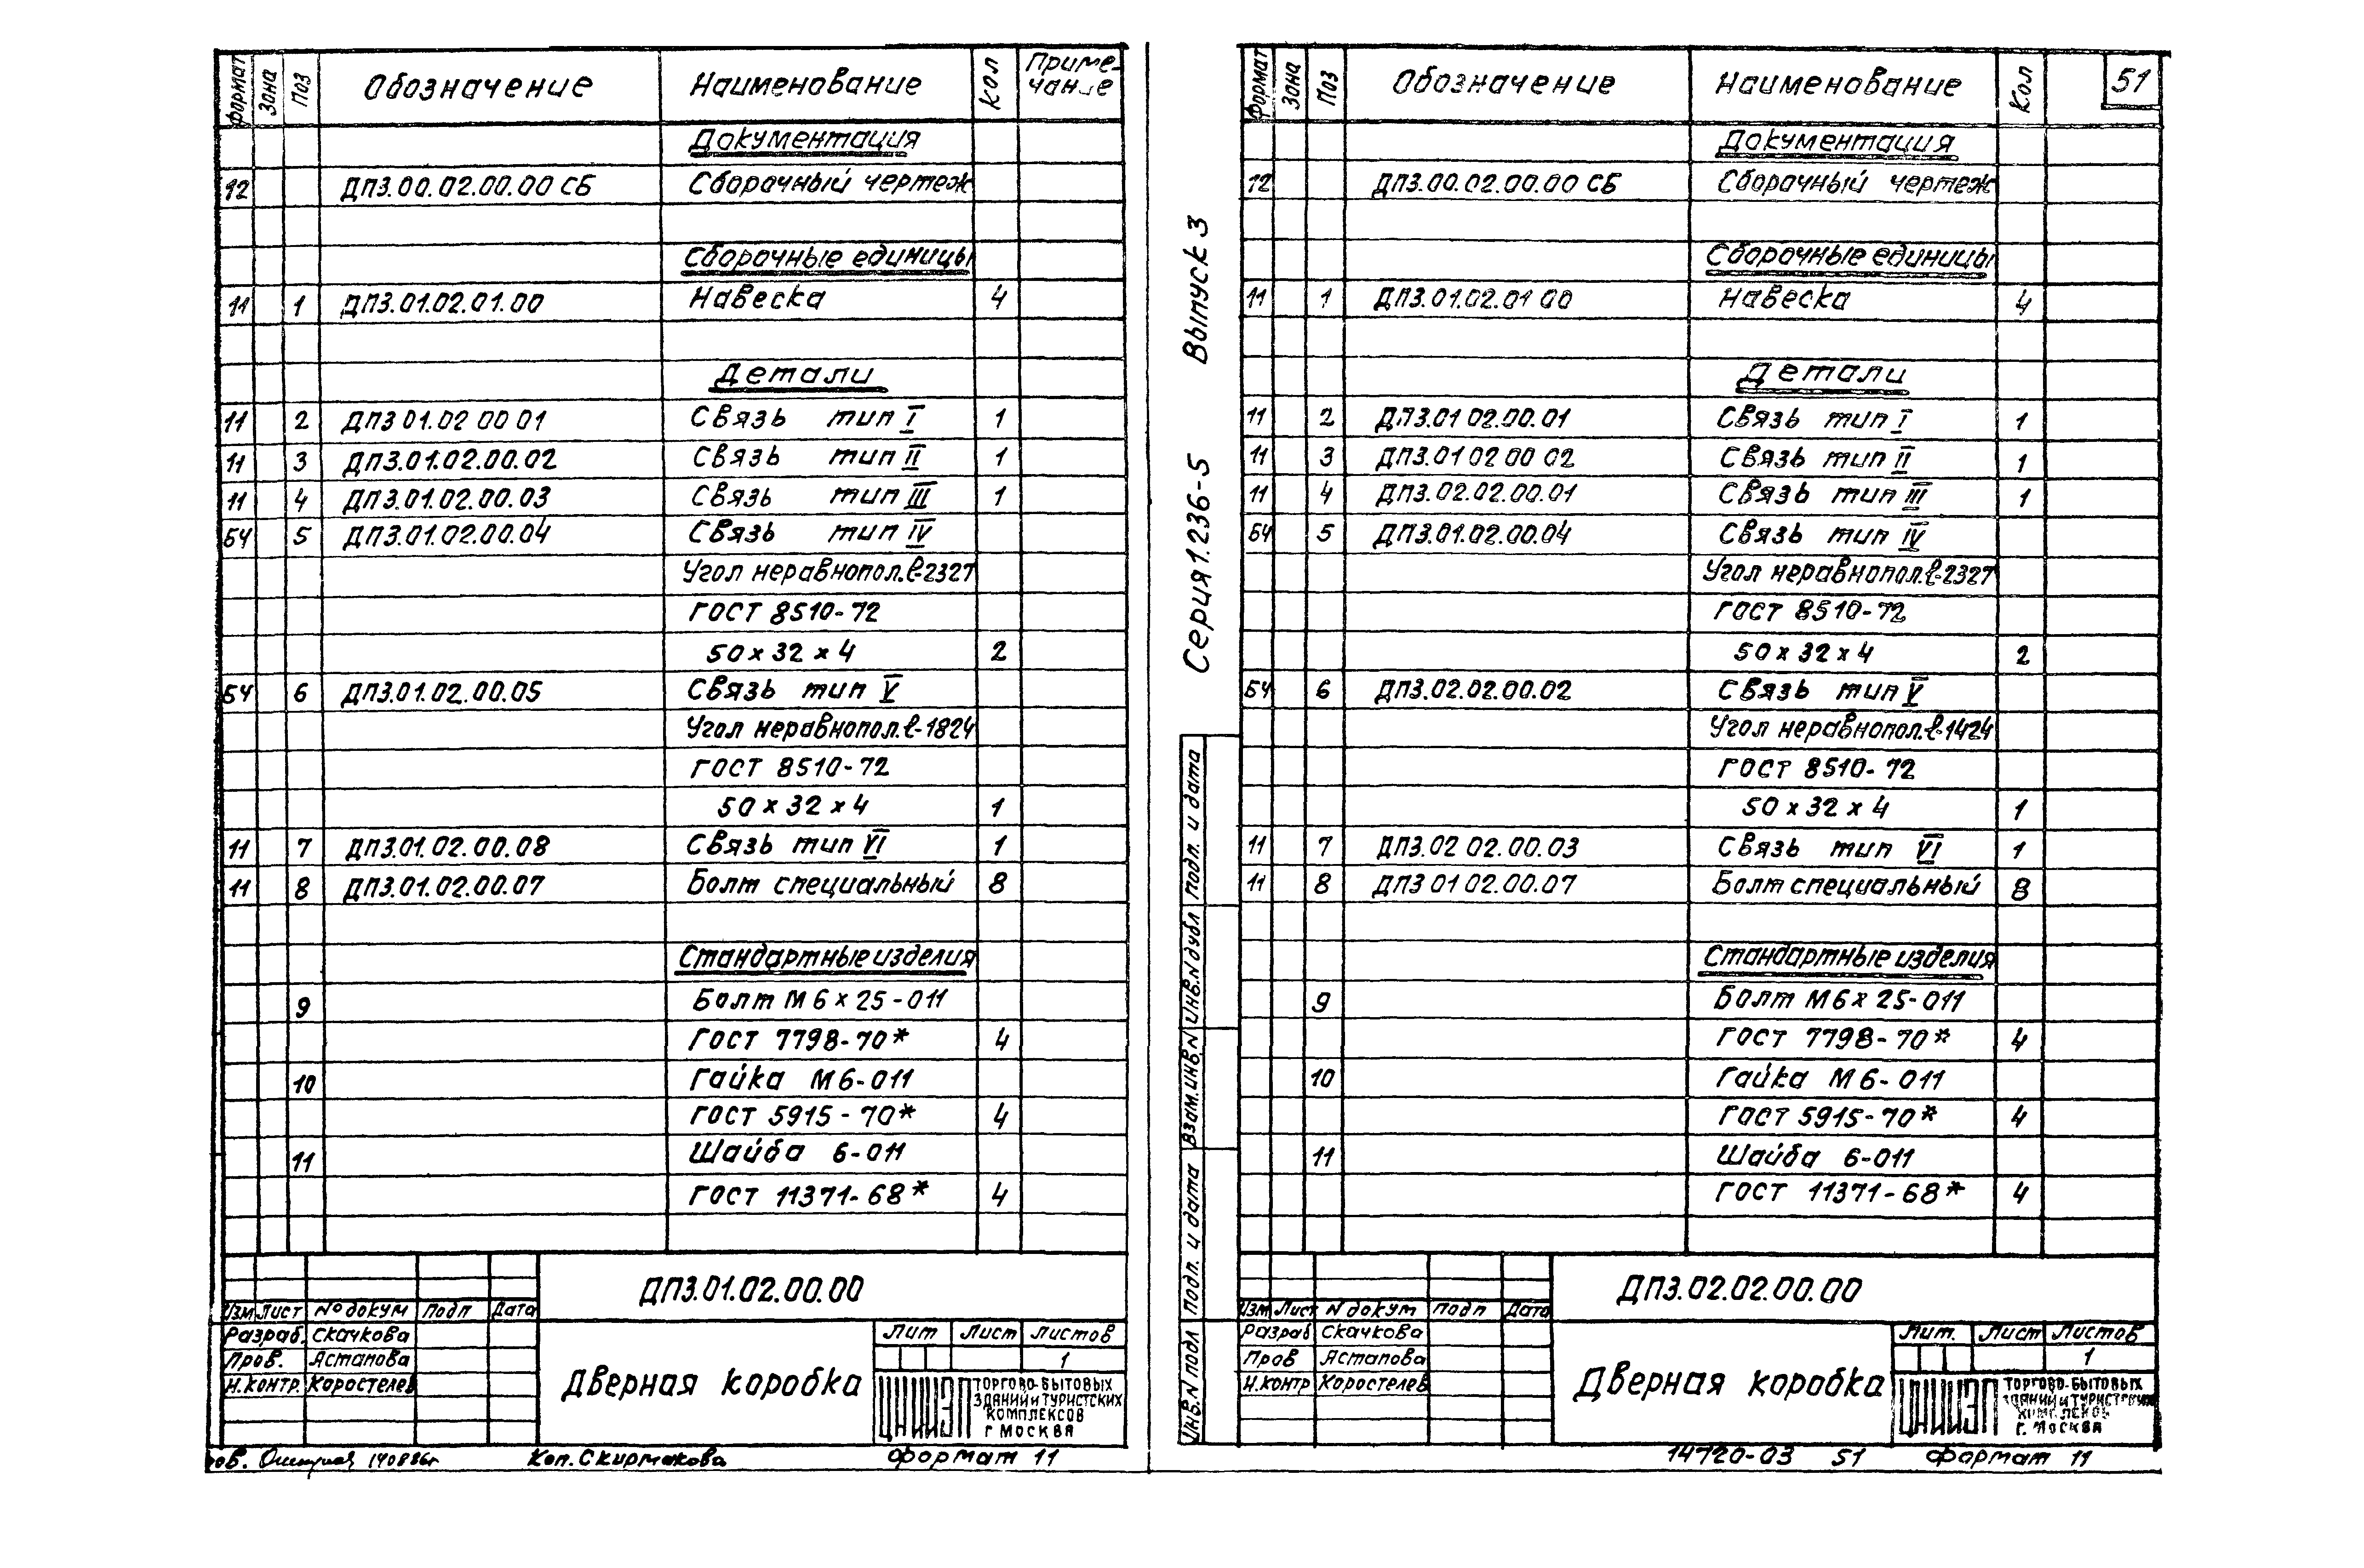 Формат Зона Поз Обозначение Наименование Кол Примечание
Документация
12 ДП3.00.02.00.00 СБ Сборочный чертеж
Сборочные единицы
11 1 ДП3.01.02.01.00 Навеска 4
Детали
11 2 ДП3 01.02 00 01 Связь тип I 1
11 3 ДП3.01.02.00.02 Связь тип II 1
11 4 ДП3.01.02.00.03 Связь тип III 1
БЧ 5 ДП3.01.02.00.04 Связь тип IV
Угол неравнопол. ℓ-2327
ГОСТ 8510-72
50 х 32 х 4 2
БЧ 6 ДП3.01.02.00.05 Связь тип V
Угол неравнопол. ℓ-1824
ГОСТ 8510-72
50 х 32 х 4 1
11 7 ДП3.01.02.00.08 Связь тип VI 1
11 8 ДП3.01.02.00.07 Болт специальный 8
Стандартные изделия
9 Болт М6х25-011
ГОСТ 7798-70* 4
10 Гайка М6-011
ГОСТ 5915-70* 4
11 Шайба 6-011
ГОСТ 11371-68* 4
ДП3.01.02.00.00
Изм Лист № докум Подп Дата
Разраб. Скачкова
Пров. Астапова
Н.контр. Коростелев
Дверная коробка
Лит Лист Листов
1
ЦНИИЭП
ТОРГОВО-БЫТОВЫХ
ЗДАНИЙ И ТУРИСТСКИХ
КОМПЛЕКСОВ
Г МОСКВА
Коп. Скирмакова Формат 11
Серия 1.236-5 Выпуск 3
Формат Зона Поз Обозначение Наименование Кол 51
Документация
12 ДП3.00.02.00.00 СБ Сборочный чертеж
Сборочные единицы
11 1 ДП3.01.02.01 00 Навеска 4
Детали
11 2 ДП3.01 02.00.01 Связь тип I 1
11 3 ДП3.01 02 00 02 Связь тип II 1
11 4 ДП3.02.02.00.01 Связь тип III 1
БЧ 5 ДП3.01.02.00.04 Связь тип IV
Угол неравнопол. ℓ-2327
ГОСТ 8510-72
50 х 32 х 4 2
БЧ 6 ДП3.02.02.00.02 Связь тип V
Угол неравнопол. ℓ-1424
ГОСТ 8510-72
50 х 32 х 4 1
11 7 ДП3.02 02.00.03 Связь тип VI 1
11 8 ДП3 01 02.00.07 Болт специальный 8
Стандартные изделия
9 Болт М6х25-011
ГОСТ 7798-70* 4
10 Гайка М6-011
ГОСТ 5915-70* 4
11 Шайба 6-011
ГОСТ 11371-68* 4
Инв.N подл подп. и дата Взам.инв.N Инв.N дубл подп. и дата
ДП3.02.02.00.00
Изм Лист N докум подп Дата
Разраб Скачкова
Пров Астапова
Н.контр Коростелев
Дверная коробка
Лит. Лист Листов
1
ЦНИИЭП
ТОРГОВО-БЫТОВЫХ
ЗДАНИЙ И ТУРИСТСКИХ
КОМПЛЕКСОВ
Г. МОСКВА
14720-03 51 Формат 11